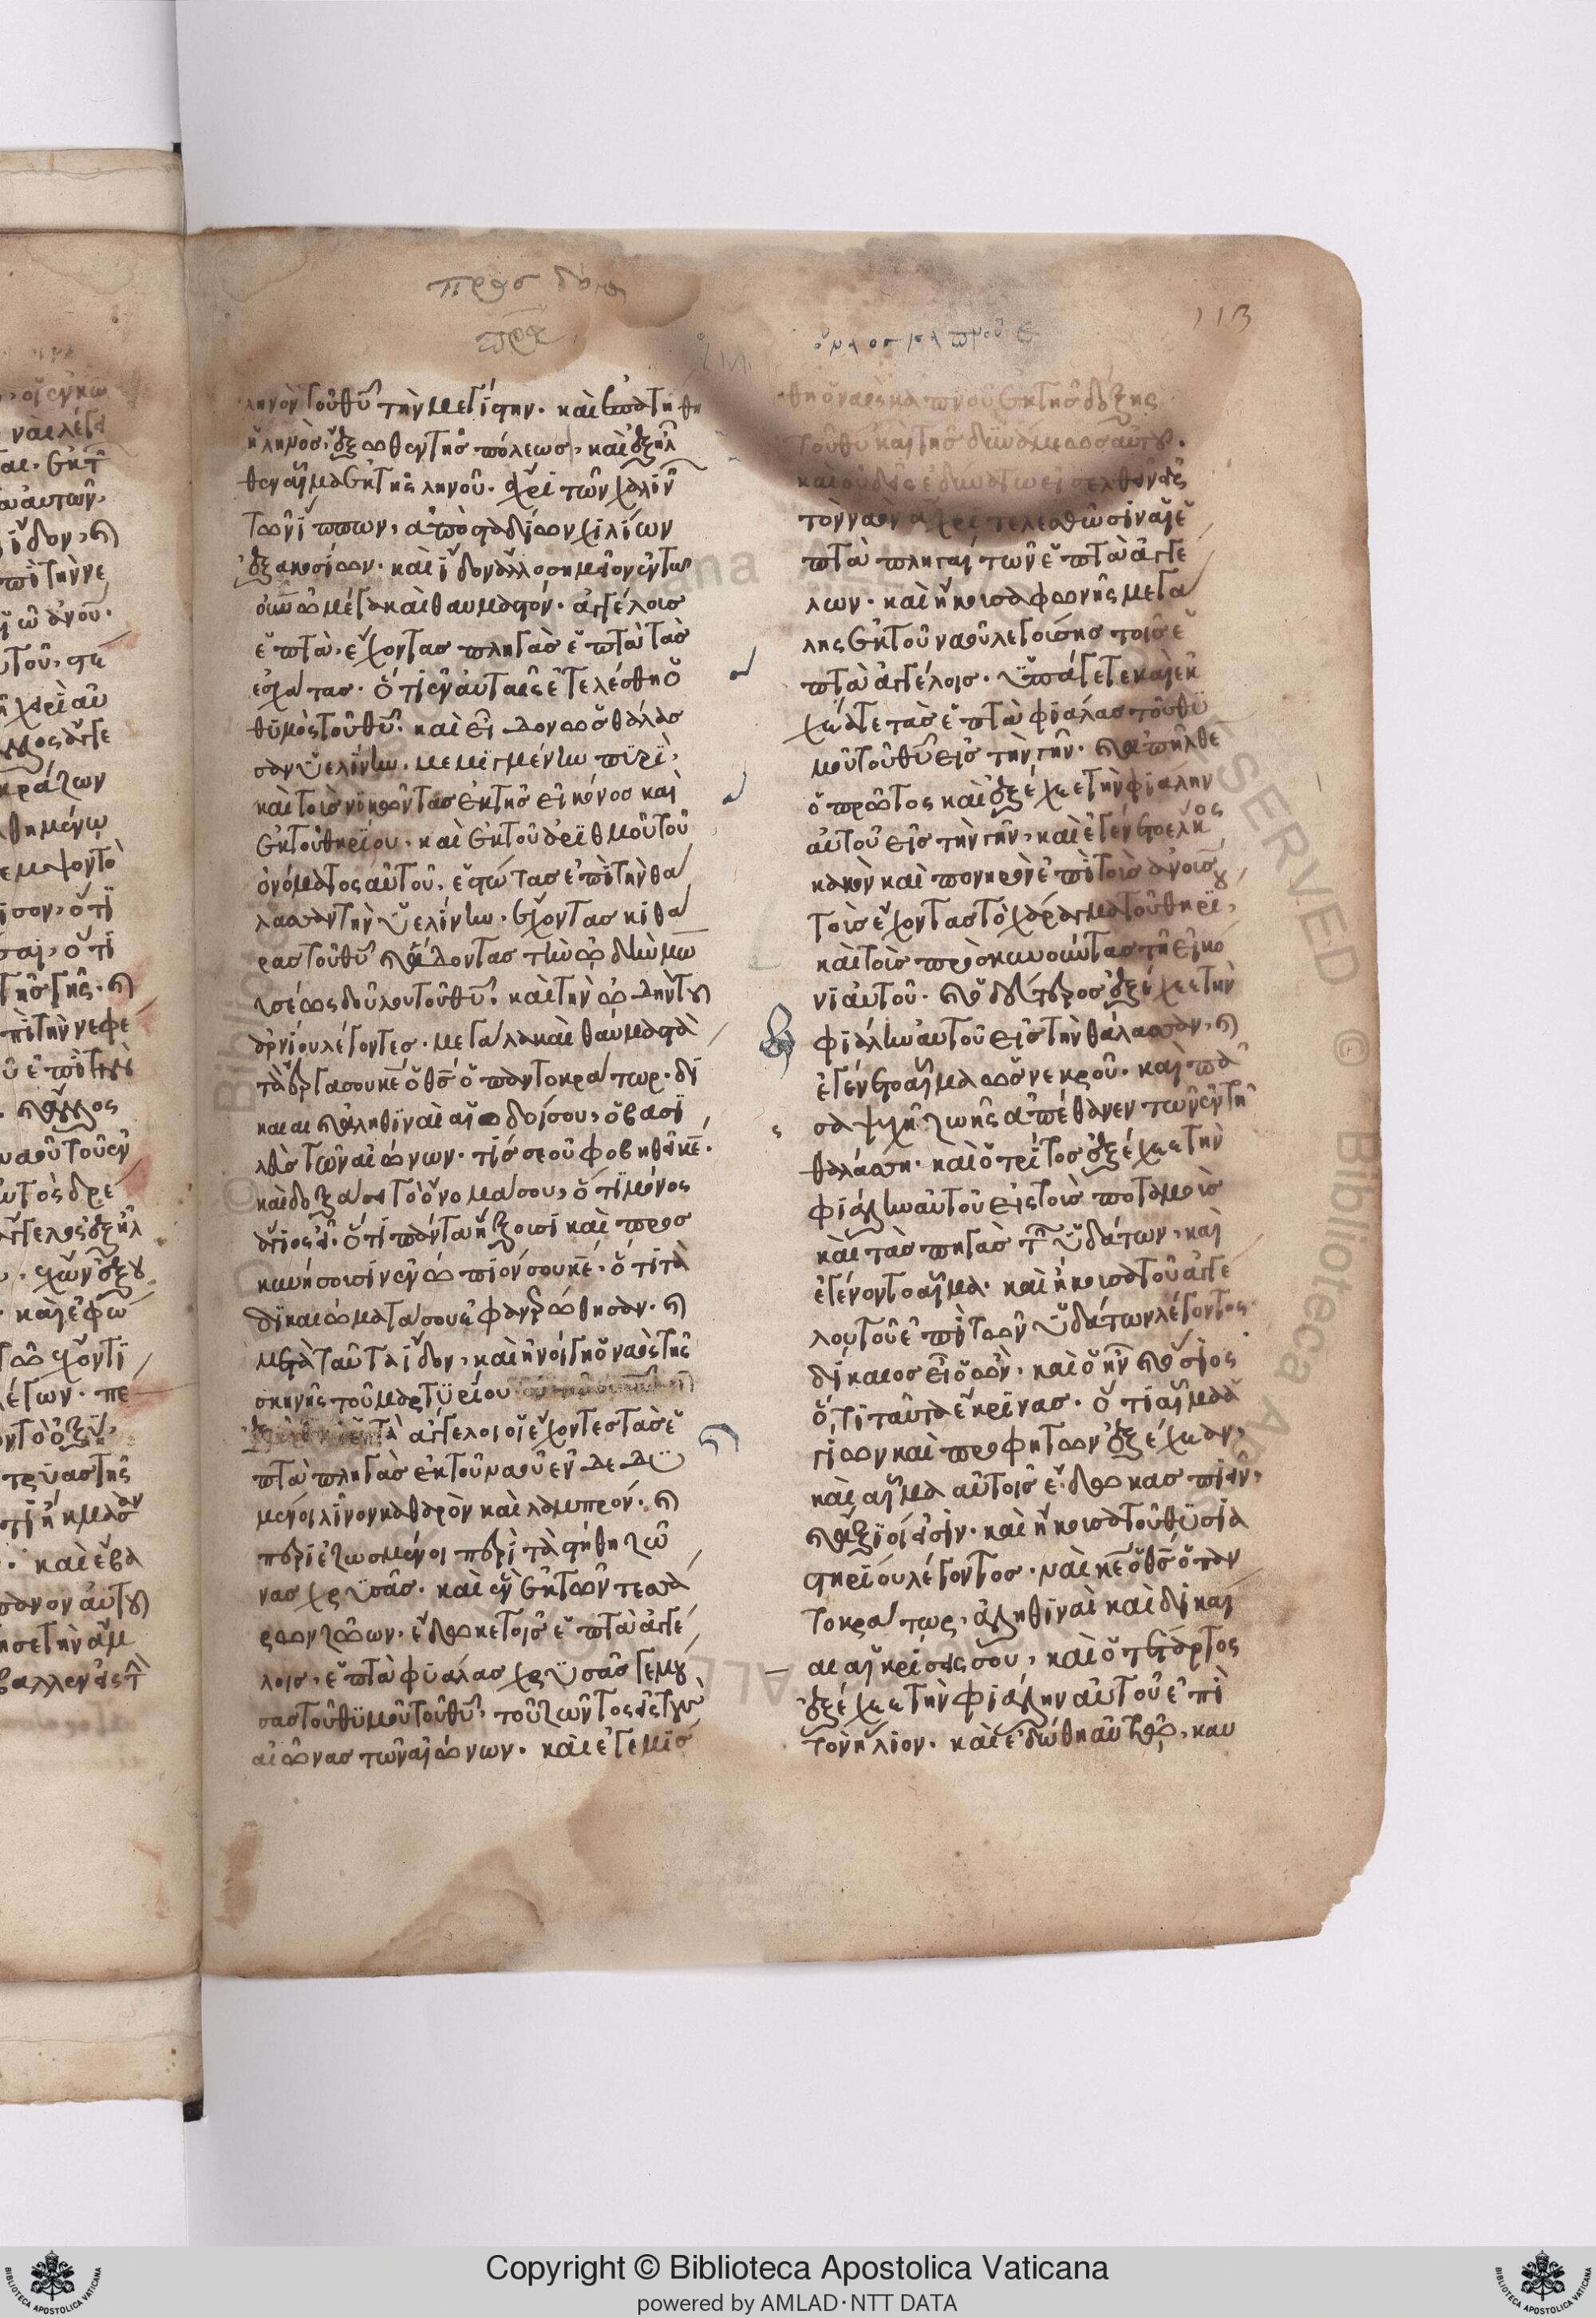 113
ληνὸν τοῦ θῦ τὴν μεγίστην· καὶ ἐπατήθη
ἡ ληνὸς, ἔξωθεν τῆς πόλεως, καὶ ἐξῆλ
θεν αἷμα ἐκ τῆς ληνοῦ· ἄχρι τῶν χαλινῶν
τῶν ἵππων, ἀπὸ σταδίων χιλίων
ἑξακοσίων· καὶ ἴδον ἄλλο σημεῖον ἐν τῶ
οὐνῶ μέγα καὶ θαυμαστόν· ἀγγέλοις
ἑπτὰ, ἔχοντας πληγὰς ἑπτὰ τὰς
ἐσχάτας· ὅτι ἐν αὐταῖς ἐτελέσθη ὁ
θυμὸς τοῦ θῦ· καὶ εἶδον ὡς θάλασ
σαν ὑελίνην· μεμιγμένην πυρὶ,
καὶ τοὺς νικῶντας ἐκ τῆς εἰκόνος καὶ
ἐκ τοῦ θηρίου· καὶ ἐκ τοῦ ἀριθμοῦ τοῦ
ὀνόματος αὐτοῦ, ἑστώτας ἐπὶ τὴν θά
λασσαν τὴν ὑελίνην· ἔχοντας κιθά
ρας τοῦ θῦ καὶ ἄδοντας τὴν ὠδὴν μω
υσέως δούλου τοῦ θῦ· καὶ τὴν ὠδὴν τοῦ
ἀρνίου λέγοντες· μεγάλα καὶ θαυμαστὰ
τὰ ἔργα σου κε ὁ θς ὁ παντοκράτωρ· δί
καιαι καὶ ἀληθιναὶ αἱ ὁδοί σου, ὁ βασι
λεὺς τῶν αἰώνων· τίς σε οὐ φοβηθῆ κε·
καὶ δοξάσει τὸ ὄνομά σου, ὅτι μόνος
ἅγιος εἶ· ὅτι πάντα ἥξουσι καὶ προσ
κυνήσουσιν ἐνώπιόν σου κε· ὅτι τὰ
δικαιώματά σου ἐφανερώθησαν· καὶ
μετὰ ταῦτα ἴδον, καὶ ἠνοίγη ὁ ναὸς τῆς
σκηνῆς τοῦ μαρτυρίου
ἄγγελοι οἱ ἔχοντες τὰς ἑ
πτὰ πληγὰς ἐκ τοῦ ναοῦ ἐνδεδυ
μένοι λίνον καθαρὸν καὶ λαμπρόν· καὶ
περιεζωσμένοι περὶ τὰ στήθη ζώ
νας χρυσᾶς· καὶ ἓν ἐκ τῶν τεσσά
ρων ζώων· ἔδωκε τοῖς ἑπτὰ ἀγγέ
λοις, ἑπτὰ φυάλας χρυσᾶς γεμού
σας τοῦ θυμοῦ τοῦ θῦ, τοῦ ζῶντος εἰς τοὺς
αἰῶνας τῶν αἰώνων· καὶ ἐγεμίσ
θη ὁ ναὸς καπνοῦ ἐκ τῆς δόξης
τοῦ θῦ καὶ τῆς δυνάμεως αὐτοῦ·
καὶ οὐδεὶς ἐδύνατο εἰσελθεῖν εἰς
τὸν ναὸν ἄχρι τελεσθῶσιν αἱ ἑ
πτὰ πληγαὶ τῶν ἑπτὰ ἀγγέ
λων· καὶ ἤκουσα φωνῆς μεγά
λης ἐκ τοῦ ναοῦ λεγούσης τοῖς ἑ
πτὰ ἀγγέλοις· ὑπάγετε καὶ ἐκ
χέατε τὰς ἑπτὰ φιάλας τοῦ θυ
μοῦ τοῦ θῦ εἰς τὴν γῆν· καὶ ἀπῆλθε
ὁ πρῶτος καὶ ἐξέχεε τὴν φιάλην
αὐτοῦ εἰς τὴν γῆν, καὶ ἐγένετο ἕλκος
κακὸν καὶ πονηρὸν ἐπὶ τοὺς ἀνους
τοὺς ἔχοντας τὸ χάραγμα τοῦ θηρί,
καὶ τοὺς προσκυνοῦντας τῆ εἰκό
νι αὐτοῦ· καὶ ὁ δεύτερος ἐξέχεε τὴν
φιάλην αὐτοῦ εἰς τὴν θάλασσαν, καὶ
ἐγένετο αἷμα ὡς νεκροῦ· καὶ πᾶ
σα ψυχὴ ζωῆς ἀπέθανεν τῶν ἐν τῆ
θαλάσση· καὶ ὁ τρίτος ἐξέχεε τὴν
φιάλην αὐτοῦ εἰς τοὺς ποταμοὺς
καὶ τὰς πηγὰς τῶν ὑδάτων, καὶ
ἐγένοντο αἷμα· καὶ ἤκουσα τοῦ ἀγγέ
λου τοῦ ἐπὶ τῶν ὑδάτων λέγοντος
δίκαιος εἶ ὁ ὢν, καὶ ὁ ἦν καὶ ὅσιος
ὅτι ταῦτα ἔκρινας· ὅτι αἷμα ἁ
γίων καὶ προφητῶν ἐξέχεαν,
καὶ αἷμα αὐτοῖς ἔδωκας πιεῖν,
καὶ ἄξιοί εἰσιν· καὶ ἤκουσα τοῦ θυσια
στηρίου λέγοντος· ναὶ κε ὁ θς ὁ παν
τοκράτωρ, ἀληθιναὶ καὶ δίκαι
αι αἱ κρίσεις σου, καὶ ὁ τέταρτος
ἐξέχεε τὴν φιάλην αὐτοῦ ἐπὶ
τὸν ἥλιον· καὶ ἐδόθη αὐτῶ, καυ
Copyright © Biblioteca Apostolica Vaticana
powered by AMLAD·NTT DATA